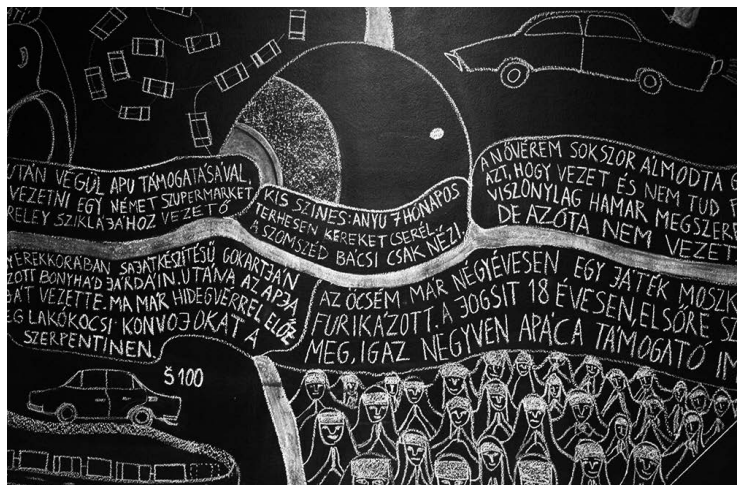 UTÁN VÉGÜL APU TÁMOGATÁSÁVAL,
VEZETNI EGY NÉMET SZUPERMARKET
RELEY SZIKLÁJÁHOZ VEZETŐ
KIS SZÍNES: ANYU 7 HÓNAPOS
TERHESEN KEREKET CSERÉL,
A SZOMSZÉD BÁCSI CSAK NÉZI.
A NŐVÉREM SOKSZOR ÁLMODTA
AZT, HOGY VEZET ÉS NEM TUD
VISZONYLAG HAMAR MEGSZER
DE AZÓTA NEM VEZET
YEREKKORÁBAN SAJÁTKÉSZÍTÉSŰ GOKARTJÁN
ZOTT BONYHÁD JÁRDÁIN. UTÁNA AZ APJA
ÁT VEZETTE. MA MÁR HIDEGVÉRREL ELŐZ
EG LAKÓKOCSI KONVOJOKAT A
SZERPENTINEN.
AZ ÖCSÉM MÁR NÉGYÉVESEN, EGY JÁTÉK MOSZK
FURIKÁZOTT. A JOGSIT 18 ÉVESEN, ELSŐRE SZ
MEG, IGAZ NEGYVEN APÁCA TÁMOGATÓ IM
Š 100